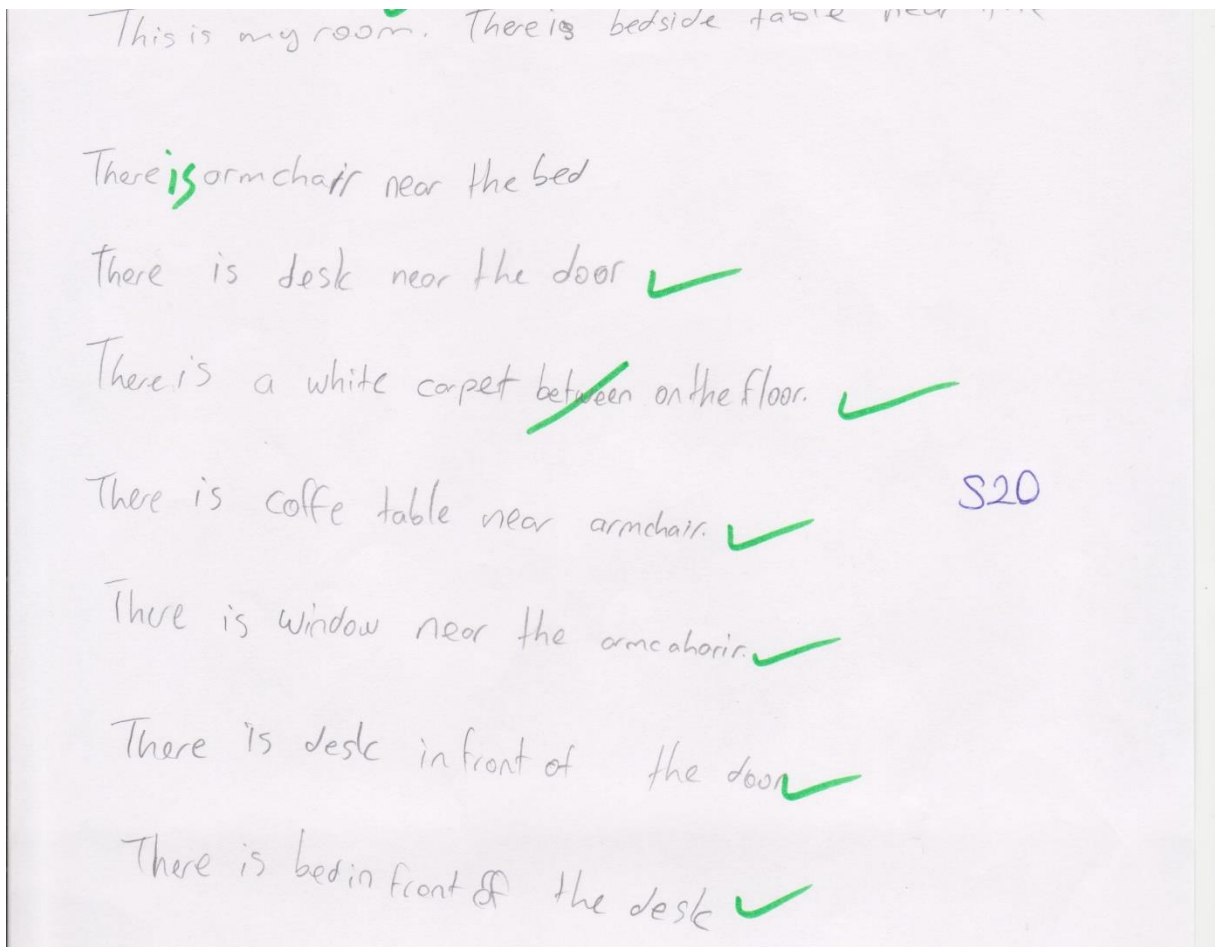 This is my room. There is bedside table near
There is armchair near the bed
There is desk near the door
There is a white carpet between on the floor.
There is coffe table near armchair.
S20
There is window near the armcahorir.
There is desk in front of the door
There is bed in front off the desk